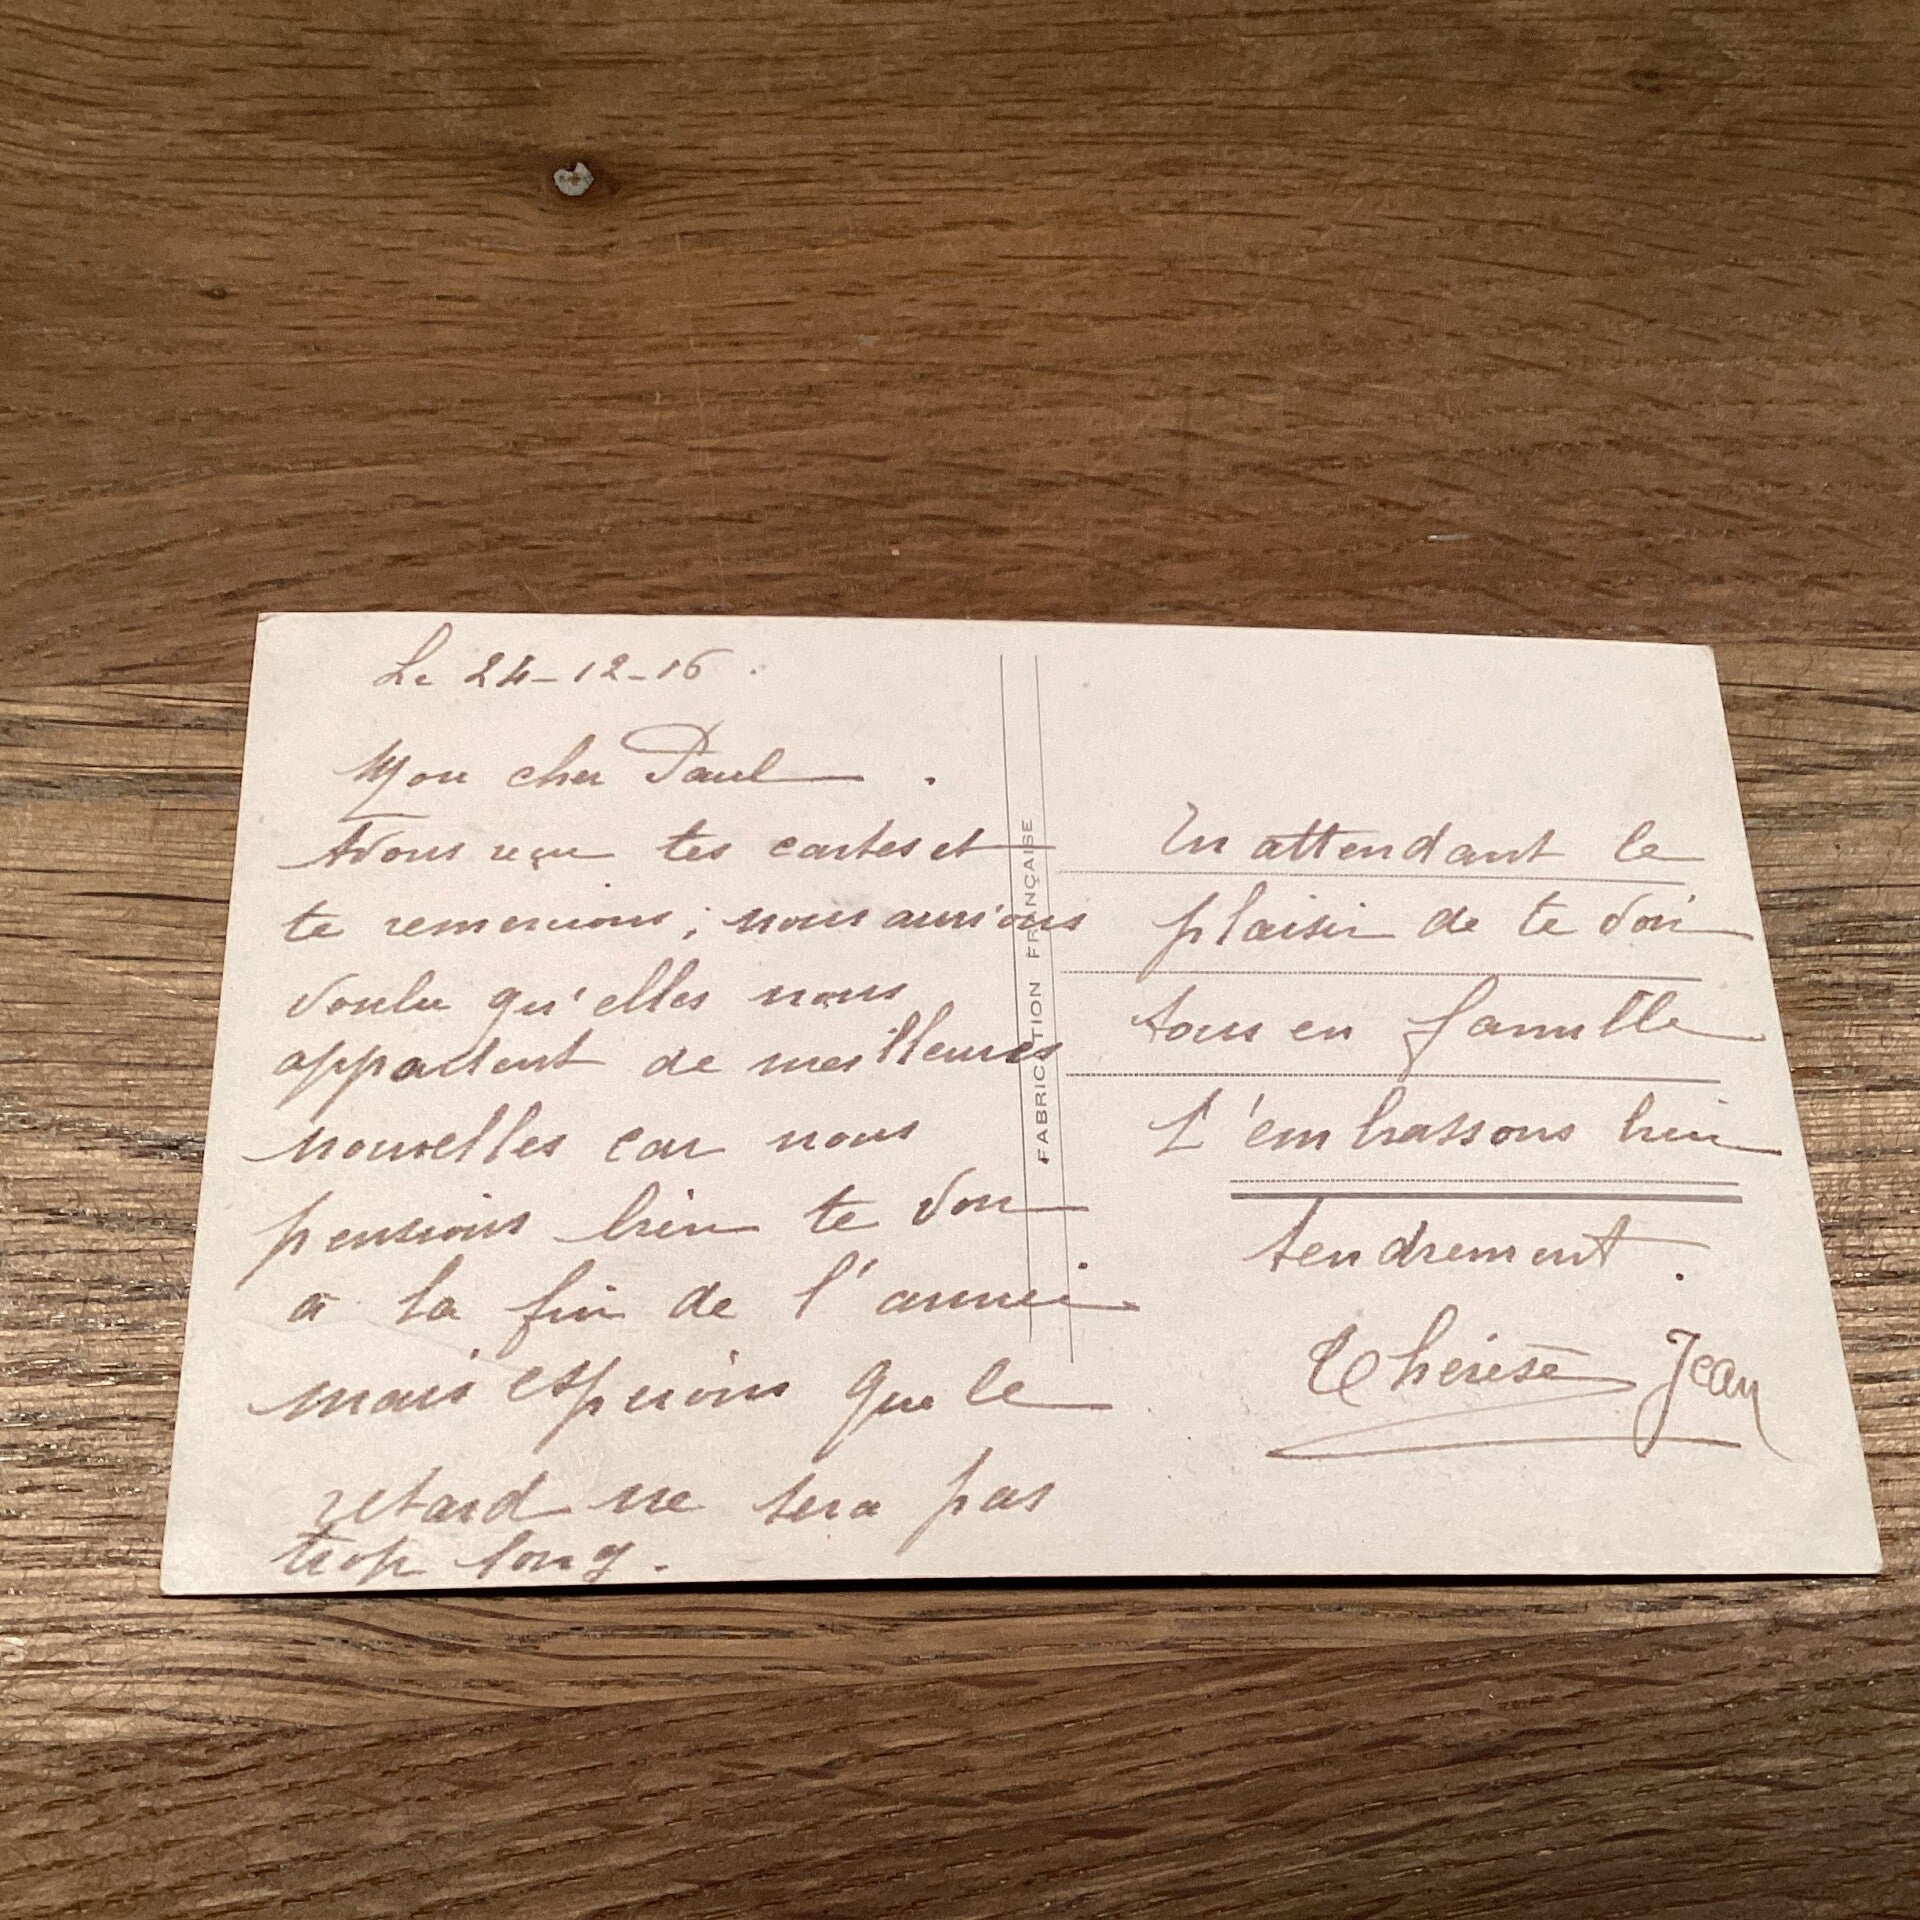 Le 24-12-16.
Mon cher Paul.
Avons reçu tes cartes et
te remercions; nous aurions
voulu qu'elles nous
apportent de meilleures
nouvelles car nous
pensions bien te voir
à la fin de l'année
mais espérons que le
retard ne sera pas
trop long.
FABRICATION FRANÇAISE
En attendant le
plaisir de te voir
tous en famille
t'embrassons bien
tendrement.
Thérèse Jean